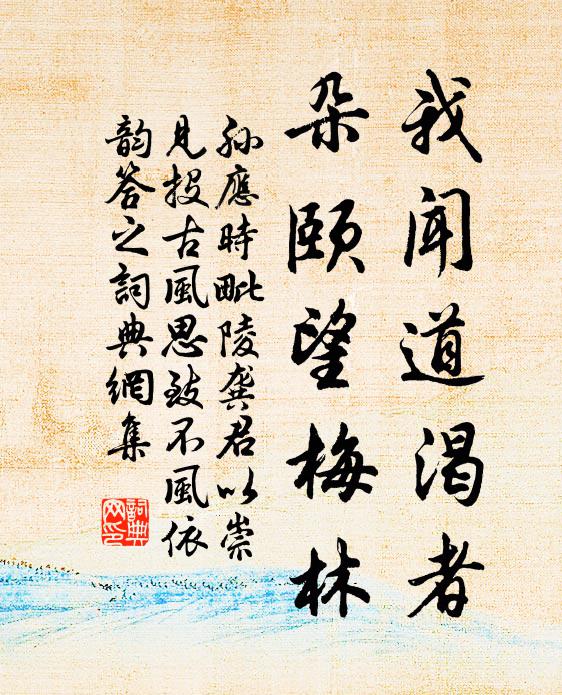 我闻道渴者
朵颐望梅林
孙应时毗陵龚君以崇
见投古风思致不风依
韵答之词典网集
词典网印